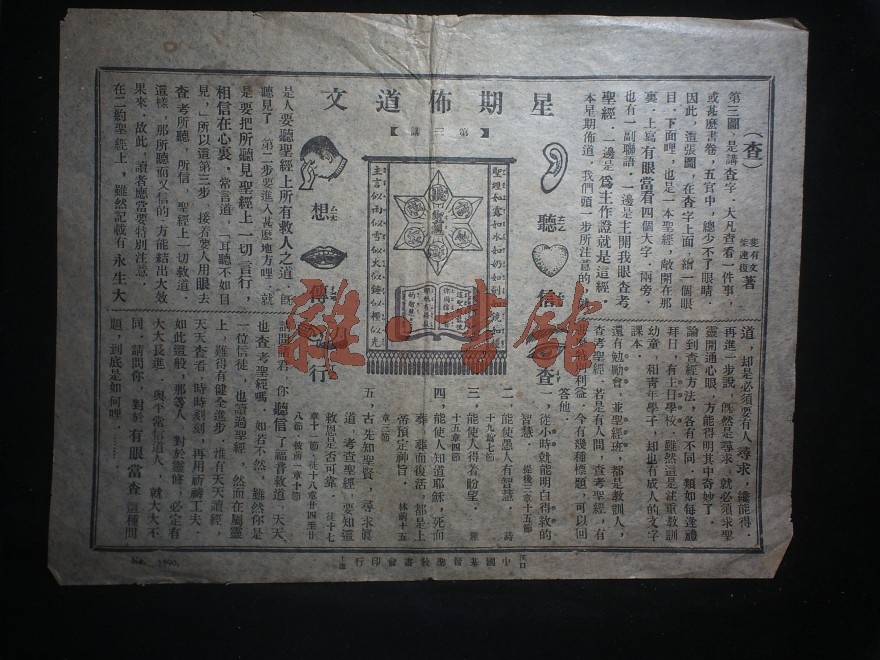 星期佈道文
【第三講】
（查）
斐有文
柴連復
著
第三圖，是講查字，大凡查看一件事，
或甚麼書卷，五官中，總少不了眼睛，
因此，這張圖，在查字上面，繪一個眼
目，下面哩，也是一本聖經，敞開在那
裏，上寫有眼當看四個大字，兩旁，
也有一副聯語，一邊是主開我眼查考
聖經，一邊是為主作證就是這經，
本星期佈道，我們頭一步所注意的，就
是人要聽聖經上所有救人之道，既
聽見了，第二步要進入甚麼地方哩，就
是要把所聽見聖經上一切言行，
相信在心裏，常言道，「耳聽不如目
見，」所以這第三步，接着要人用眼去
查考所聽，所信，聖經上一切救道，
這樣，那所聽而又信的，方能結出大效
果來，故此，讀者應當要特別注意
在二約聖經上，雖然記載有永生大
聽
信
查
想
傳
行
聖理如露如水如奶如劍如鏡如糧
主言似雨似雪似火似錘似種似光
道，却是必須要有人尋求，纔能得，
再進一步說，既然是尋求，就必須求聖
靈開通心眼，方能得明其中奇妙了，
論到查經方法，各有不同，類如每逢禮
拜日，有主日學校，雖然這是注重教訓
幼童，和青年學子，却也有成人的文字
課本，
還有勉勵會，並聖經班，都是教訓人，
查考聖經，若是有人問，查考聖經，有
利益，今有幾種標題，可以回
答他，
一，從小時就能明白得救的
智慧，提後三章十五節
二，能使愚人有智慧，詩
十九篇七節
三，能使人得着盼望，羅
十五章四節
四，能使人知道耶穌，死而
葬，葬而復活，都是上
帝預定神旨，林前十五
章三節
五，古先知聖賢，尋求真
道，考查聖經，要知道
救恩是否可靠，徒十七
章十一節，徒十八章廿四至廿
八節，彼前一章十節
請問諸君，你聽信了福音救道，天天
也查考聖經嗎，如若不然，雖然你是
一位信徒，也讀過聖經，然而在屬靈
上，難得有健全進步，惟有天天讀經，
天天查看，時時刻刻，再用祈禱工夫，
如此這般，那等人，對於靈修，必定有
大大長進，與平常信道人，就大大不
同，請問你，對於有眼當查這種問
題，到底是如何哩，………
漢口
上海
中國基督聖教書會印行
No. 1890.
雜·書館